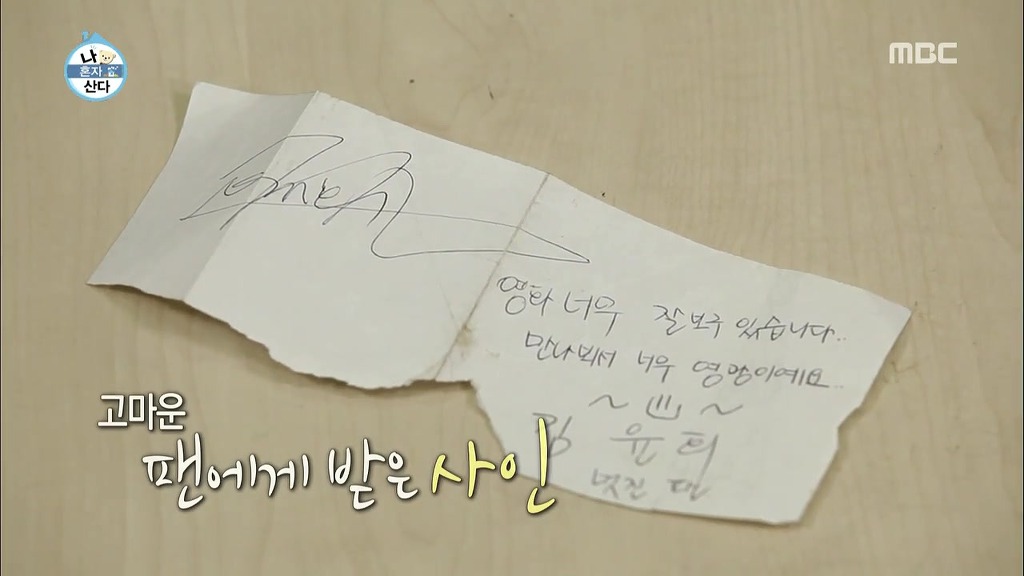 나
혼자
산다
MBC
영화 너무 잘보구 있습니다..
만나뵈서 너무 영광이예요..
윤
멋진
고마운
팬에게 받은 사인